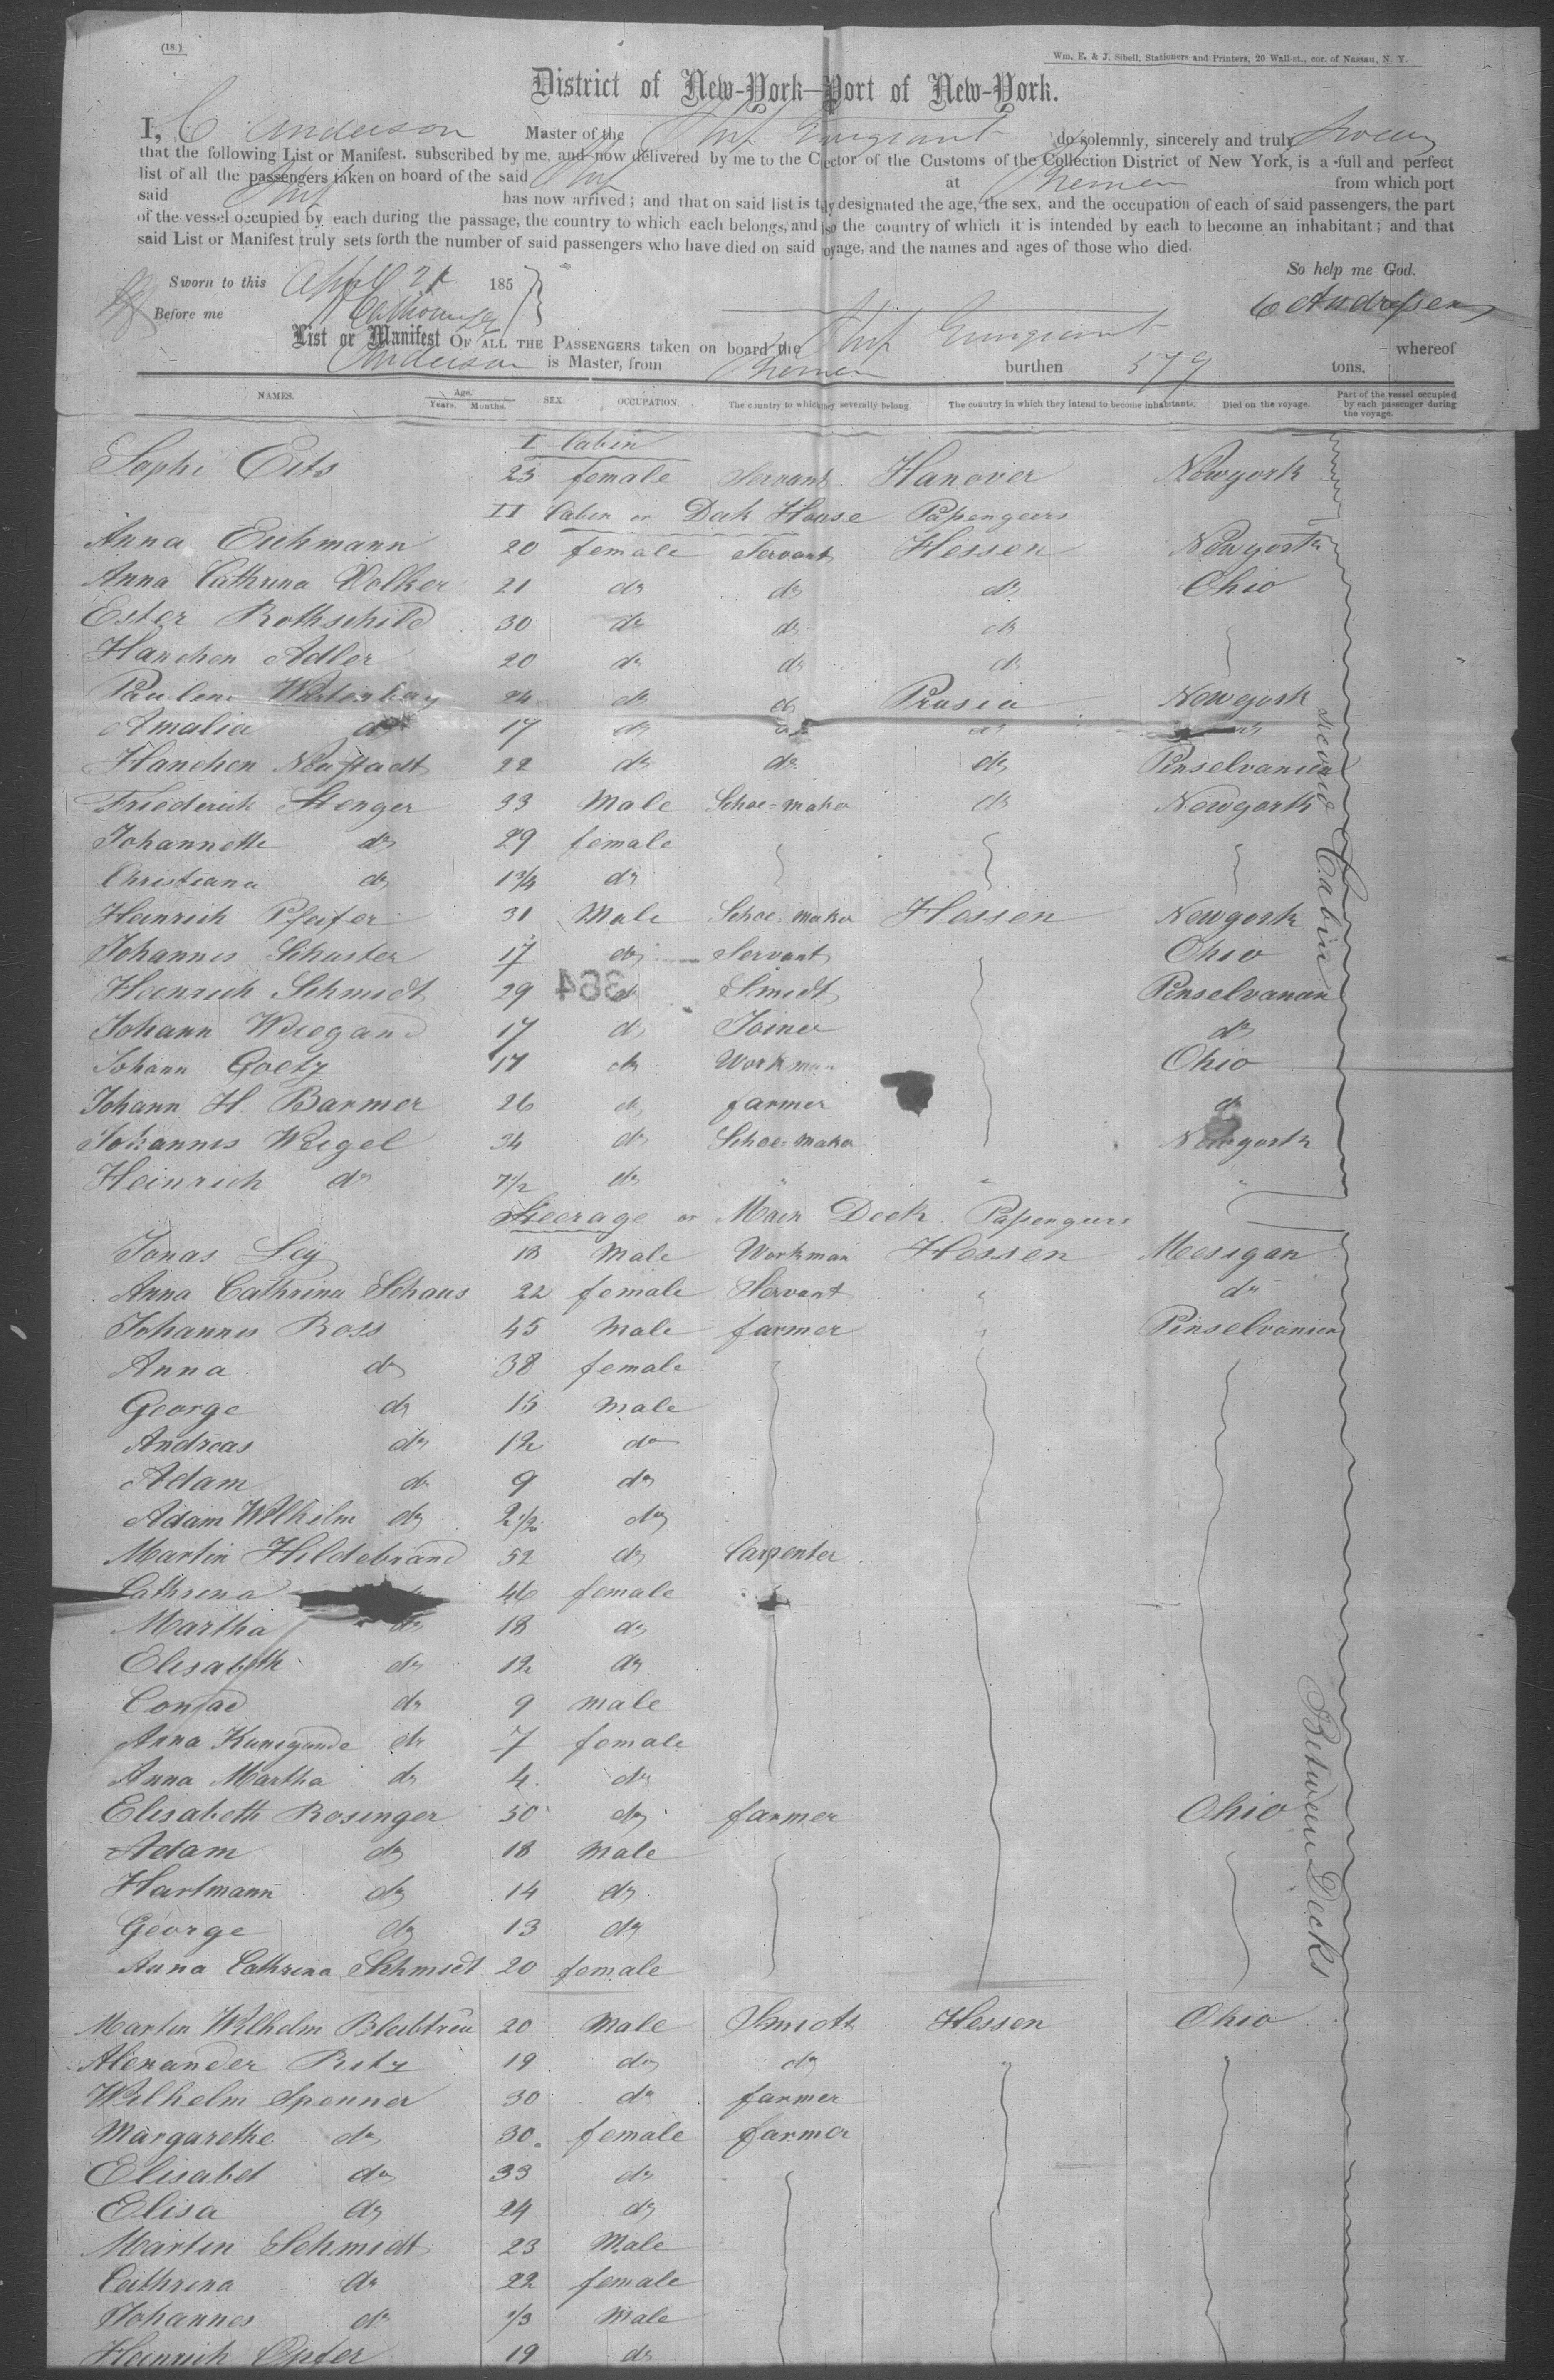 (18.)
Wm. E. & J. Sibell, Stationers and Printers, 20 Wall-st., cor. of Nassau, N. Y.
District of New-York—Port of New-York.
I, C Anderson Master of the Ship Emigrant do solemnly, sincerely and truly Swear
that the following List or Manifest, subscribed by me, and now delivered by me to the C ector of the Customs of the Collection District of New York, is a full and perfect
list of all the passengers taken on board of the said Ship at Bremen from which port
said Ship has now arrived; and that on said list is t ly designated the age, the sex, and the occupation of each of said passengers, the part
of the vessel occupied by each during the passage, the country to which each belongs, and also the country of which it is intended by each to become an inhabitant; and that
said List or Manifest truly sets forth the number of said passengers who have died on said oyage, and the names and ages of those who died.
So help me God.
Sworn to this April 21 185
Before me
C Andressen
List or Manifest OF ALL THE PASSENGERS taken on board the Ship Emigrant whereof
Anderson is Master, from Bremen burthen 579 tons.
NAMES. Age. Years. Months. SEX. OCCUPATION. The country to which they severally belong. The country in which they intend to become inhabitants. Died on the voyage. Part of the vessel occupied by each passenger during the voyage.
I Cabin
Sophi Eits 23 female Servant Hanover Newyork
II Cabin or Deck House Passengers
Anna Eichmann 20 female Servant Hessen Newyork
Anna Cathrina Volker 21 do do do Ohio
Ester Rothschild 30 do do do
Hanchen Adler 20 do do do
Paulene 24 do do Prusia Newyork
Amalia do 17 do do do do
Hanchen Neustadt 22 do do do Pinselvanien
Friederich Stenger 33 Male Schoe-maker do Newyork
Johannette do 29 female
Christiana do 1 3/4 do
Heinrich Pfeifer 31 Male Schoe-maker Hessen Newyork
Johannes Schuster 17 do Servant Ohio
Heinrich Schmidt 29 do Smidt Pinselvanien
364
Johann Wiegand 17 do Joiner do
Johann Goetz 17 do Workman Ohio
Johann H. Barmer 26 do farmer do
Johannes Weigel 34 do Schoe-maker Newyork
Heinrich do 7 1/2 do " " "
Second Cabin
Steerage or Main Deck Passengers
Jonas Ley 18 Male Workman Hessen Messigan
Anna Cathrina Schaus 22 female Servant " do
Johannes Ross 45 Male farmer " Pinselvanien
Anna do 38 female
George do 15 Male
Andreas do 12 do
Adam do 9 do
Adam Wilhelm do 2 1/2 do
Martin Hildebrand 52 do Carpenter
Cathrena 46 female
Martha do 18 do
Elisabeth do 12 do
Conrad do 9 male
Anna Kunegunde do 7 female
Anna Martha do 4 do
Elisabeth Rosinger 50 do farmer Ohio
Adam do 18 Male
Hartmann do 14 do
George do 13 do
Anna Cathrena Schmidt 20 female
Between Decks
Martin Wilhelm Bleibtreu 20 Male Smidt Hessen Ohio
Alexander Ritz 19 do do " "
Wilhelm Spenner 30 do farmer
Margarethe do 30 female farmer
Elisabet do 33 do
Elisa do 24 do
Martin Schmidt 23 Male
Cathrena do 22 female
Johannes do 1/3 Male
Heinrich Opfer 19 do